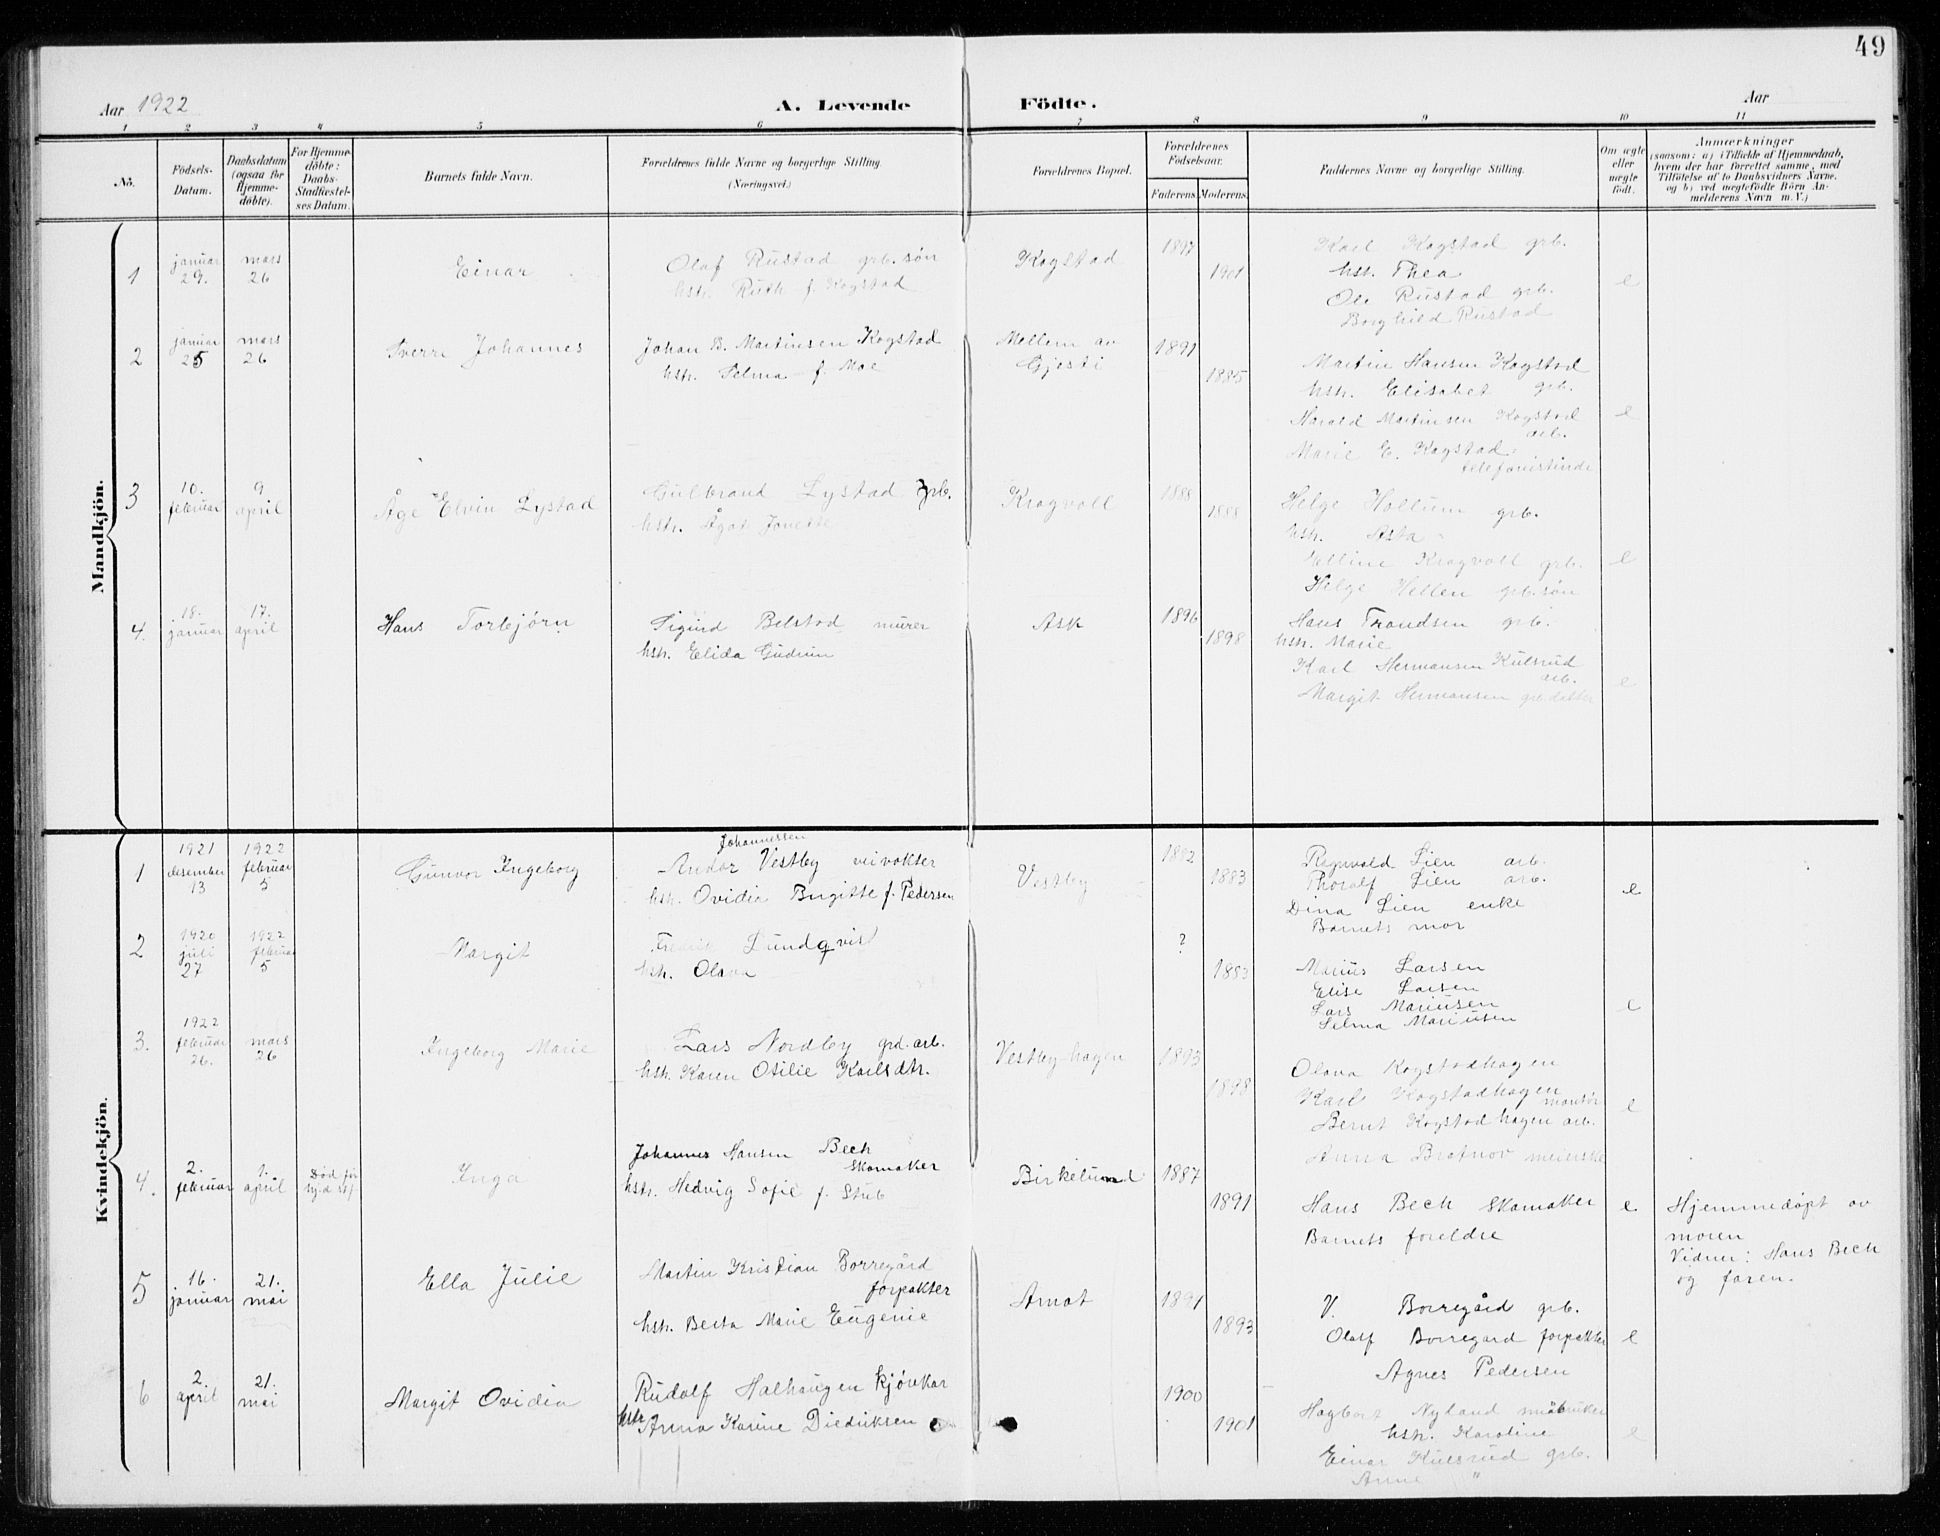 49
Aar 1922 A. Levende Födte. Aar
1 2 3 4 5 6 7 8 9 10 11
No.
Födsels-Datum.
Daabsdatum (ogsaa for Hjemme-döbte).
For Hjemme-döbte: Daabs-Stadfæstel-ses Datum.
Barnets fulde Navn.
Forældrenes fulde Navne og borgerlige Stilling (Næringsvei.)
Forældrenes Bopæl.
Forældrenes Födselsaar.
Faderens. Moderens.
Faddernes Navne og borgerlige Stilling.
Om ægte eller uægte födt.
Anmærkninger
(saasom: a) i Tilfælde af Hjemmedaab,
hvem der har forrettet samme, med
Tilföielse af to Daabsvidners Navne,
og b) ved uægtefödte Börn An-
melderens Navn m. V.)
Mandkjön.
1 januar 29. mars 26 Einar
Olaf Rustad grb. søn
hstr. Ruth f. Kogstad
Kogstad 1897 1901
Karl Kogstad grb.
hst. Thea
Ole Rustad grb.
Borghild Rustad
e
2 januar 25 mars 26 Sverre Johannes
Johan B. Martinsen Kogstad
hstr. Selma f. Moe
Mellem av Gjesti 1891 1885
Martin Hansen Kogstad
hstr. Elisabet grb.
Harald Martinsen Kogstad
arb.
Marie E. Kogstad
telefonistinde
e
3 10. februar 9 april Åge Elvin Lystad
Gulbrand Lystad grb.
hstr. Ågot Jonette
Kragvoll 1888 1888
Helge Hollum grb.
hstr. Asta
Elline Kragvoll grb.
Helge Hellen grb. søn
e
4. 18. januar 17. april Hans Torbjørn
Sigurd Belstad murer
hstr. Elida Gudrun
Ask 1896 1898
Hans Trondsen grb.
hstr. Marie
Karl Hermansen Kulsrud
arb.
Margit Hermansen grb. datter
e
Kvindekjön.
1 1921 desember 13 1922 februar 5 Gunvor Ingeborg
Johannessen
Andor Vestby veivokter
hstr. Ovidia Birgitte f. Pedersen
Vestby 1882 1883
Ragnvald Lien arb.
Thoralf Lien arb.
Dina Lien enke
Barnets mor
e
2 1920 juli 27 1922 februar 5 Margit
Fredrik Lundqvist
hstr. Olava
? 1883
Marius Larsen
Elise Larsen
Lars Mariusen
Selma Mariusen
e
3. 1922 februar 26. mars 26 Ingeborg Marie
Lars Nordby grd. arb.
hstr. Karen Otilie Karlsdtr.
Vestby-hagen 1893 1898
Olava Kogstadhagen
Karl Kogstadhagen
montør
Bernt Kogstadhagen arb.
Anna Bratnov meierske
e
4. 2. februar 1. april Død før Inga
Johannes Hansen Bech
Skomaker
hstr. Hedvig Sofie f. Stub
Birkelund 1887 1891
Hans Bech Skomaker
Barnets foreldre
e
Hjemmedøpt av
moren
Vidner: Hans Bech
og faren.
5 16. januar 21. mai Ella Julie
Martin Kristian Borregård
forpakter
hstr. Berta Marie Eugenie
Arnot 1891 1893
V. Borregård grb.
Olaf Borregard forpakter
Agnes Pedersen
e
6 2. april 21. mai Margit Ovidia
Rudolf Halhaugen kjørekar
hstr. Anna Karine Diedriksen
1900 1901
Hagbart Nyland småbruker
hstr. Karoline
Einar Kulsrud grb.
Anne "
e